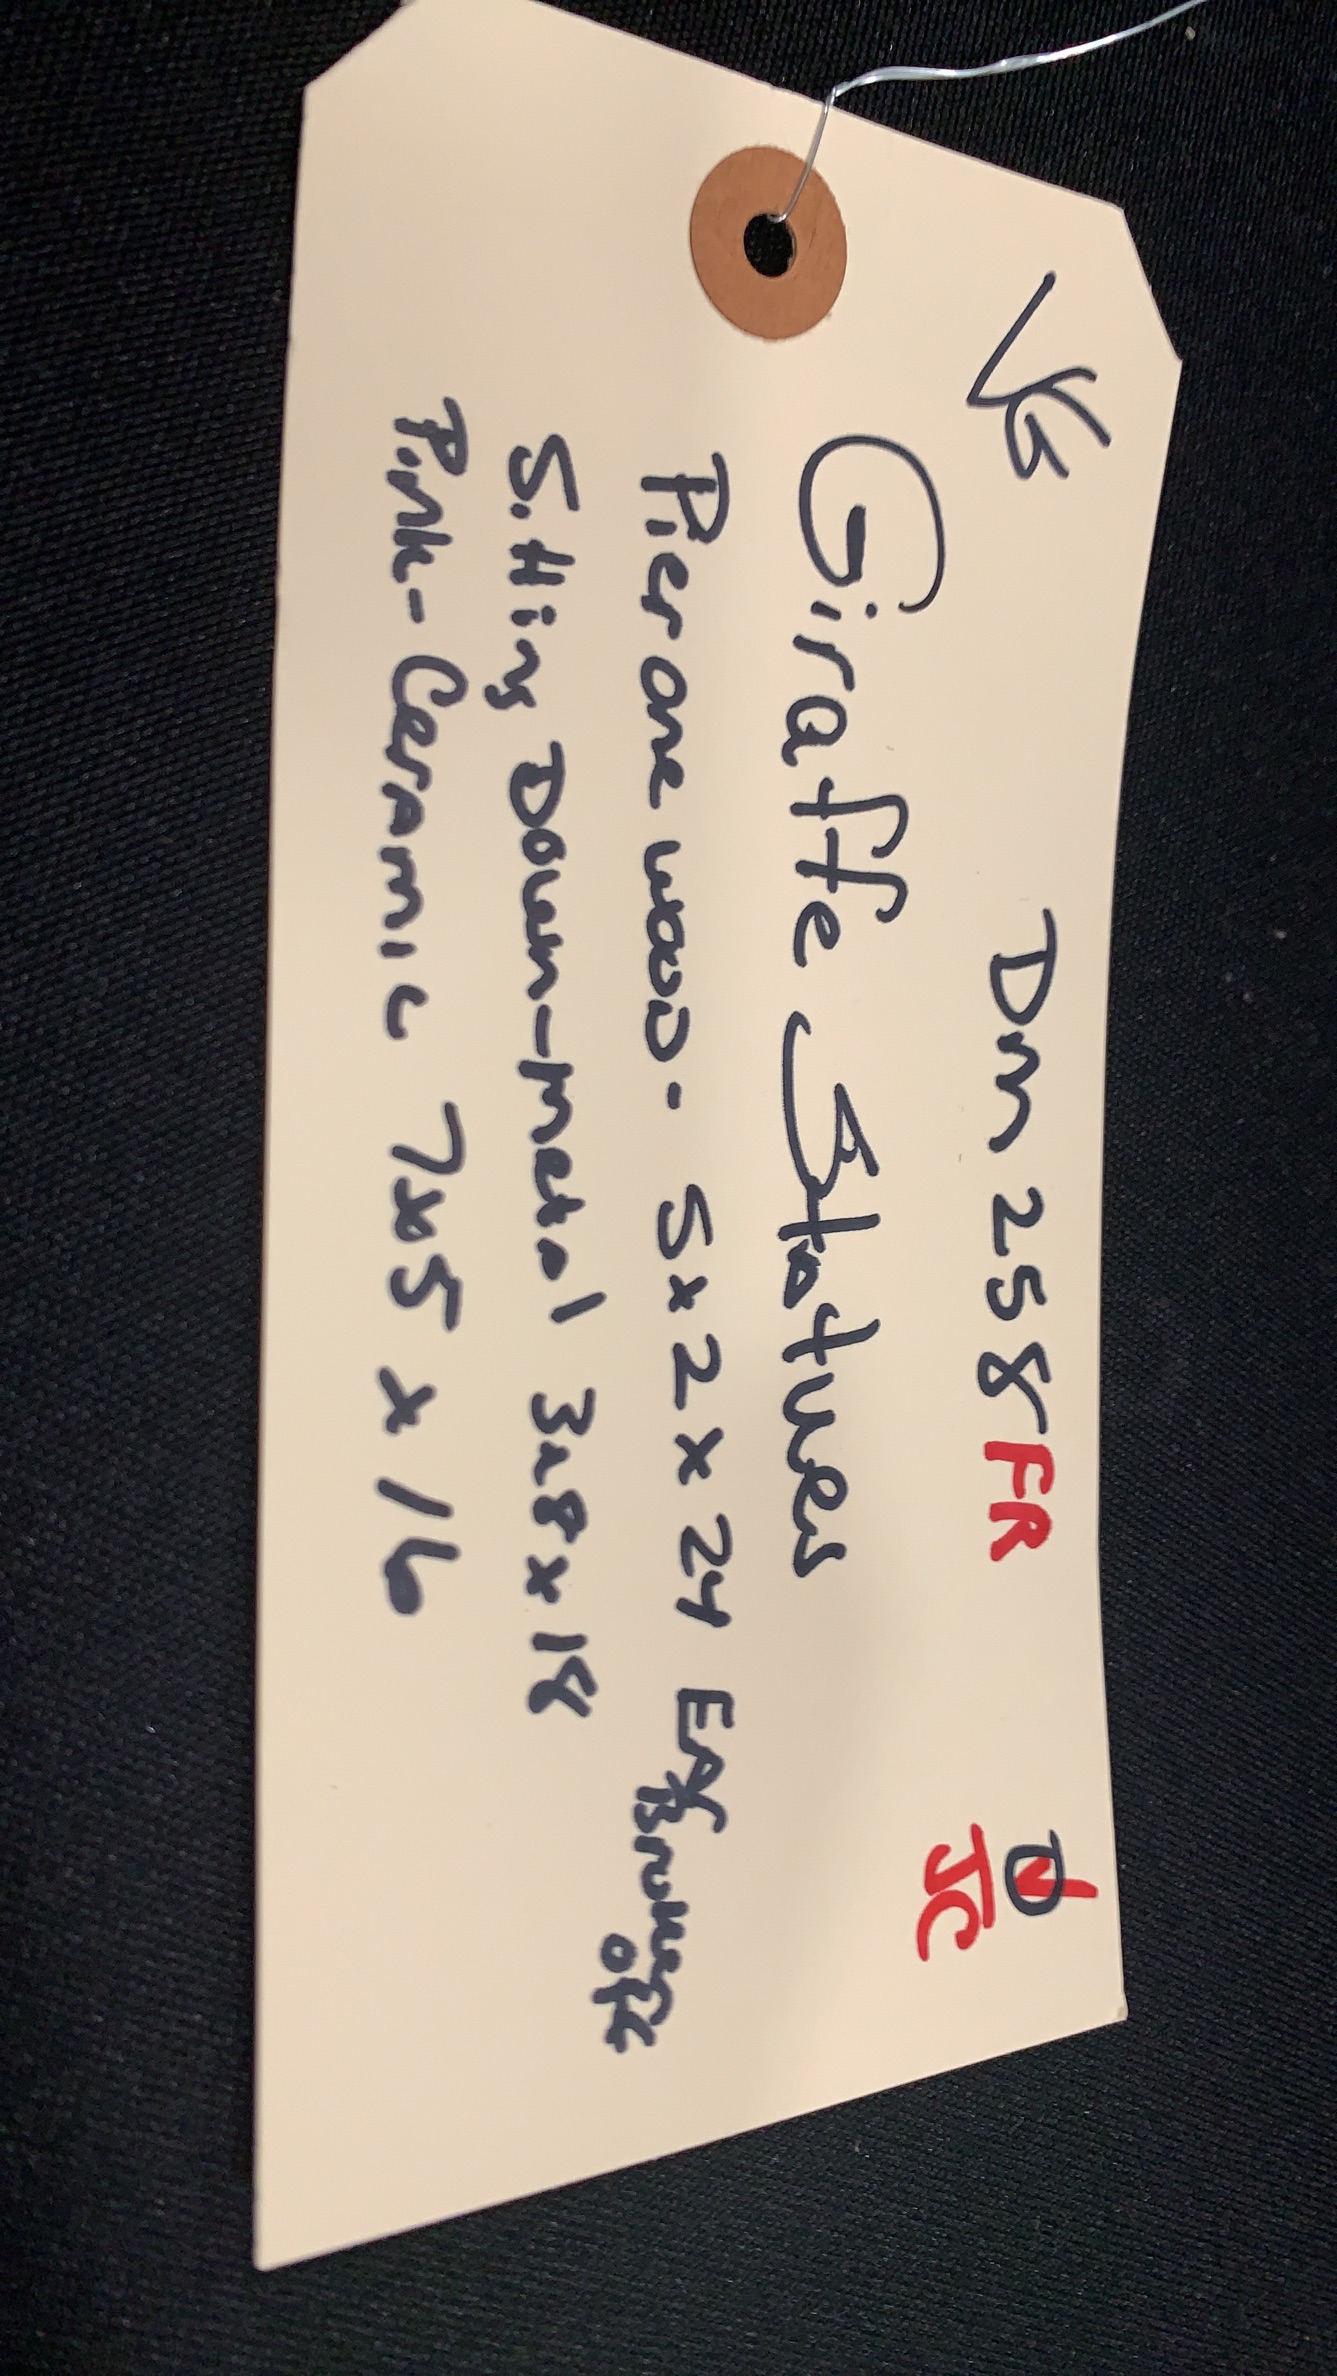 VG Dm 258 FR D
JC
Giraffe Statues
Pier one wood - 5 x 2 x 24 EAR Broken off
Sitting Down-metal 3x8x18
Pink-Ceramic 7x5 x 16